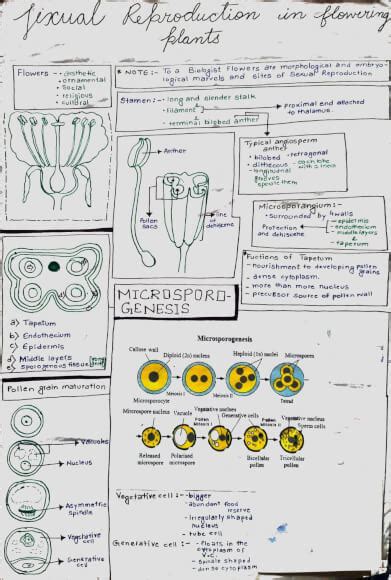 Sexual Reproduction in flowering
plants
Flowers - • aesthetic
• ornamental
• social
• religious
• cultural
* NOTE:- To a Biologist Flowers are morphological and embryo-
logical marvels and sites of Sexual Reproduction
Stamen:- • long and slender stalk
• filament
• terminal bilobed anther
Proximal end attached
to thalamus.
Anther
Pollen
sacs
line of
dehiscence
Typical angiosperm
anther
• bilobed • tetragonal
• dithecous
• longitudinal
grooves
Microsporangium:-
• surrounded by 4 walls
Protection
and dehiscence
- epidermis
- endothecium
- middle layers
- tapetum
Fuctions of Tapetum
- nourishment to developing pollen
grains
- dense cytoplasm.
- more than more nucleus
- precursor source of pollen wall
a) Tapetum
b) Endothecium
c) Epidermis
d) Middle layers
e) sporogenous tissue
MICROSPORO-
GENESIS
Pollen grain maturation
Vacuoles
Nucleus
Asymmetric
spindle
Vegetative
cell
Generative
cell
Microsporogenesis
Callose wall
Diploid (2n) nucleus
Haploid (1n) nuclei
Microspores
Meiosis I
Meiosis II
Microsporocyte
Tetrad
Microspore nucleus
Vacuole
Vegetative nucleus
Generative cells
Vegetative nucleus
Sperm cells
Pollen
Mitosis I
Pollen
Mitosis II
Released
microspore
Polarised
microspore
Bicellular
pollen
Tricellular
pollen
Vegetative cell:- - bigger
- abundant food
reserve
- irregularly shaped
nucleus
- tube cell
Generative cell:- - floats in the
cytoplasm of
V.C.
- spindle shaped
- dense cytoplasm